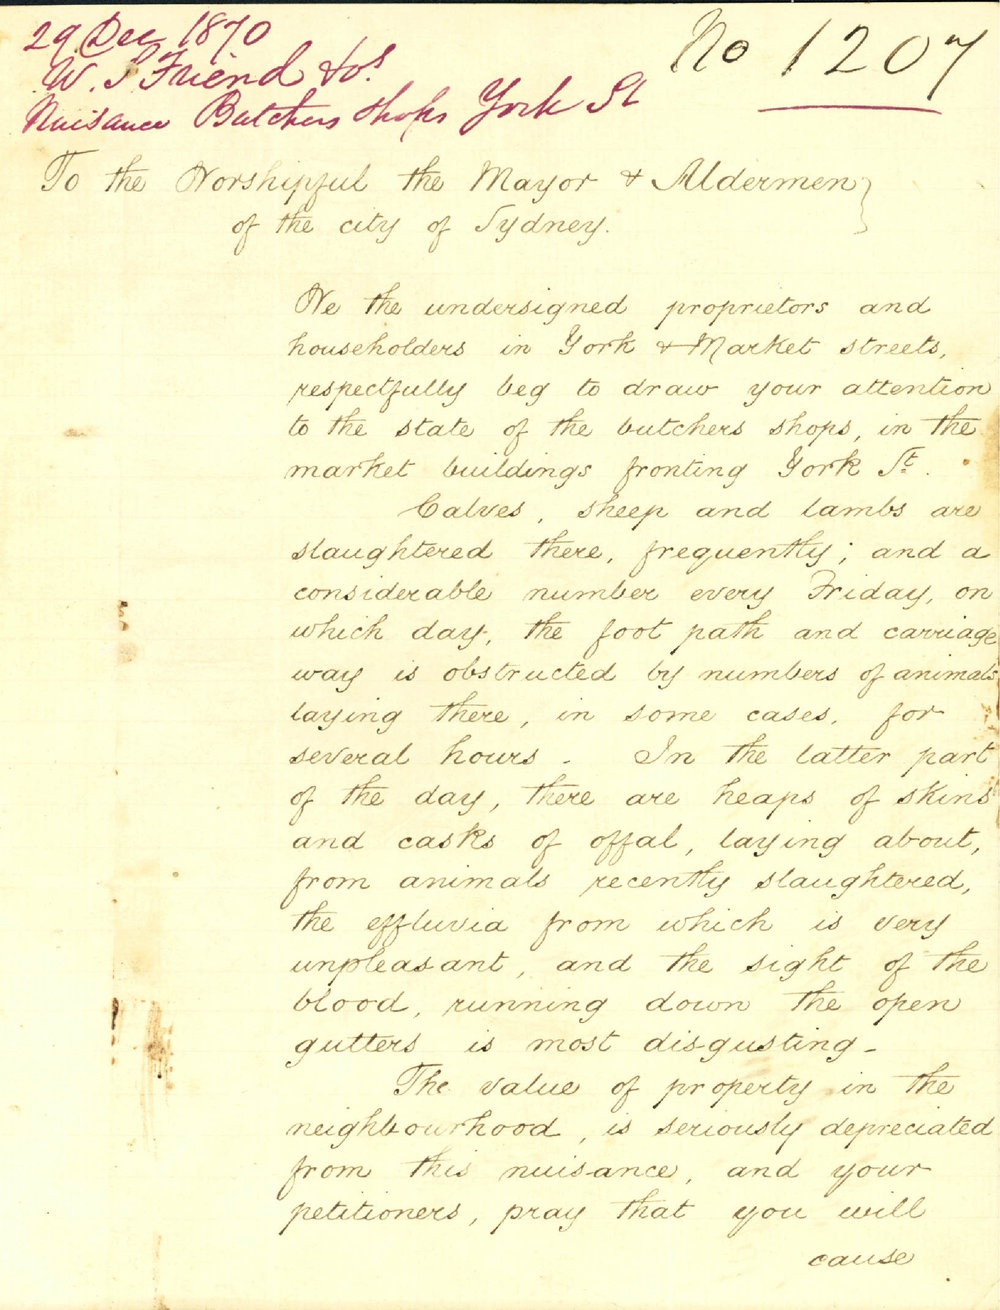 29 Dec 1870
W. S Friend & os
Nuisance Butchers Shops York St
No 1207
To the Worshipful the Mayor & Aldermen
of the city of Sydney.
We the undersigned proprietors and
householders in York & Market streets,
respectfully beg to draw your attention
to the state of the butchers shops, in the
market buildings fronting York St.
Calves, sheep and lambs are
slaughtered there, frequently; and a
considerable number every Friday, on
which day, the foot path and carriage
way is obstructed by numbers of animals
laying there, in some cases, for
several hours. In the latter part
of the day, there are heaps of skins
and casks of offal, laying about,
from animals recently slaughtered,
the effluvia from which is very
unpleasant, and the sight of the
blood, running down the open
gutters is most disgusting -
The value of property in the
neighbourhood, is seriously depreciated
from this nuisance, and your
petitioners, pray that you will
cause